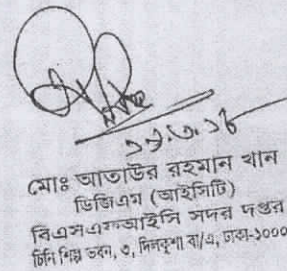 মোঃ আতাউর রহমান খান
ডিজিএম (আইসিটি)
বিএসএফআইসি সদর দপ্তর
চিনি শিল্প ভবন, ৩, দিলকুশা বা/এ, ঢাকা-১০০০